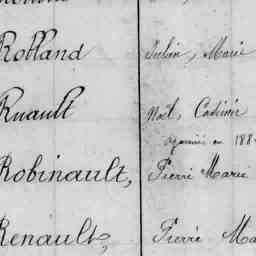 Rolland Aubin, Marie
Ruault Noël, Casimir
en 188
Robinault, Pierre Marie
Renault, Pierre Ma